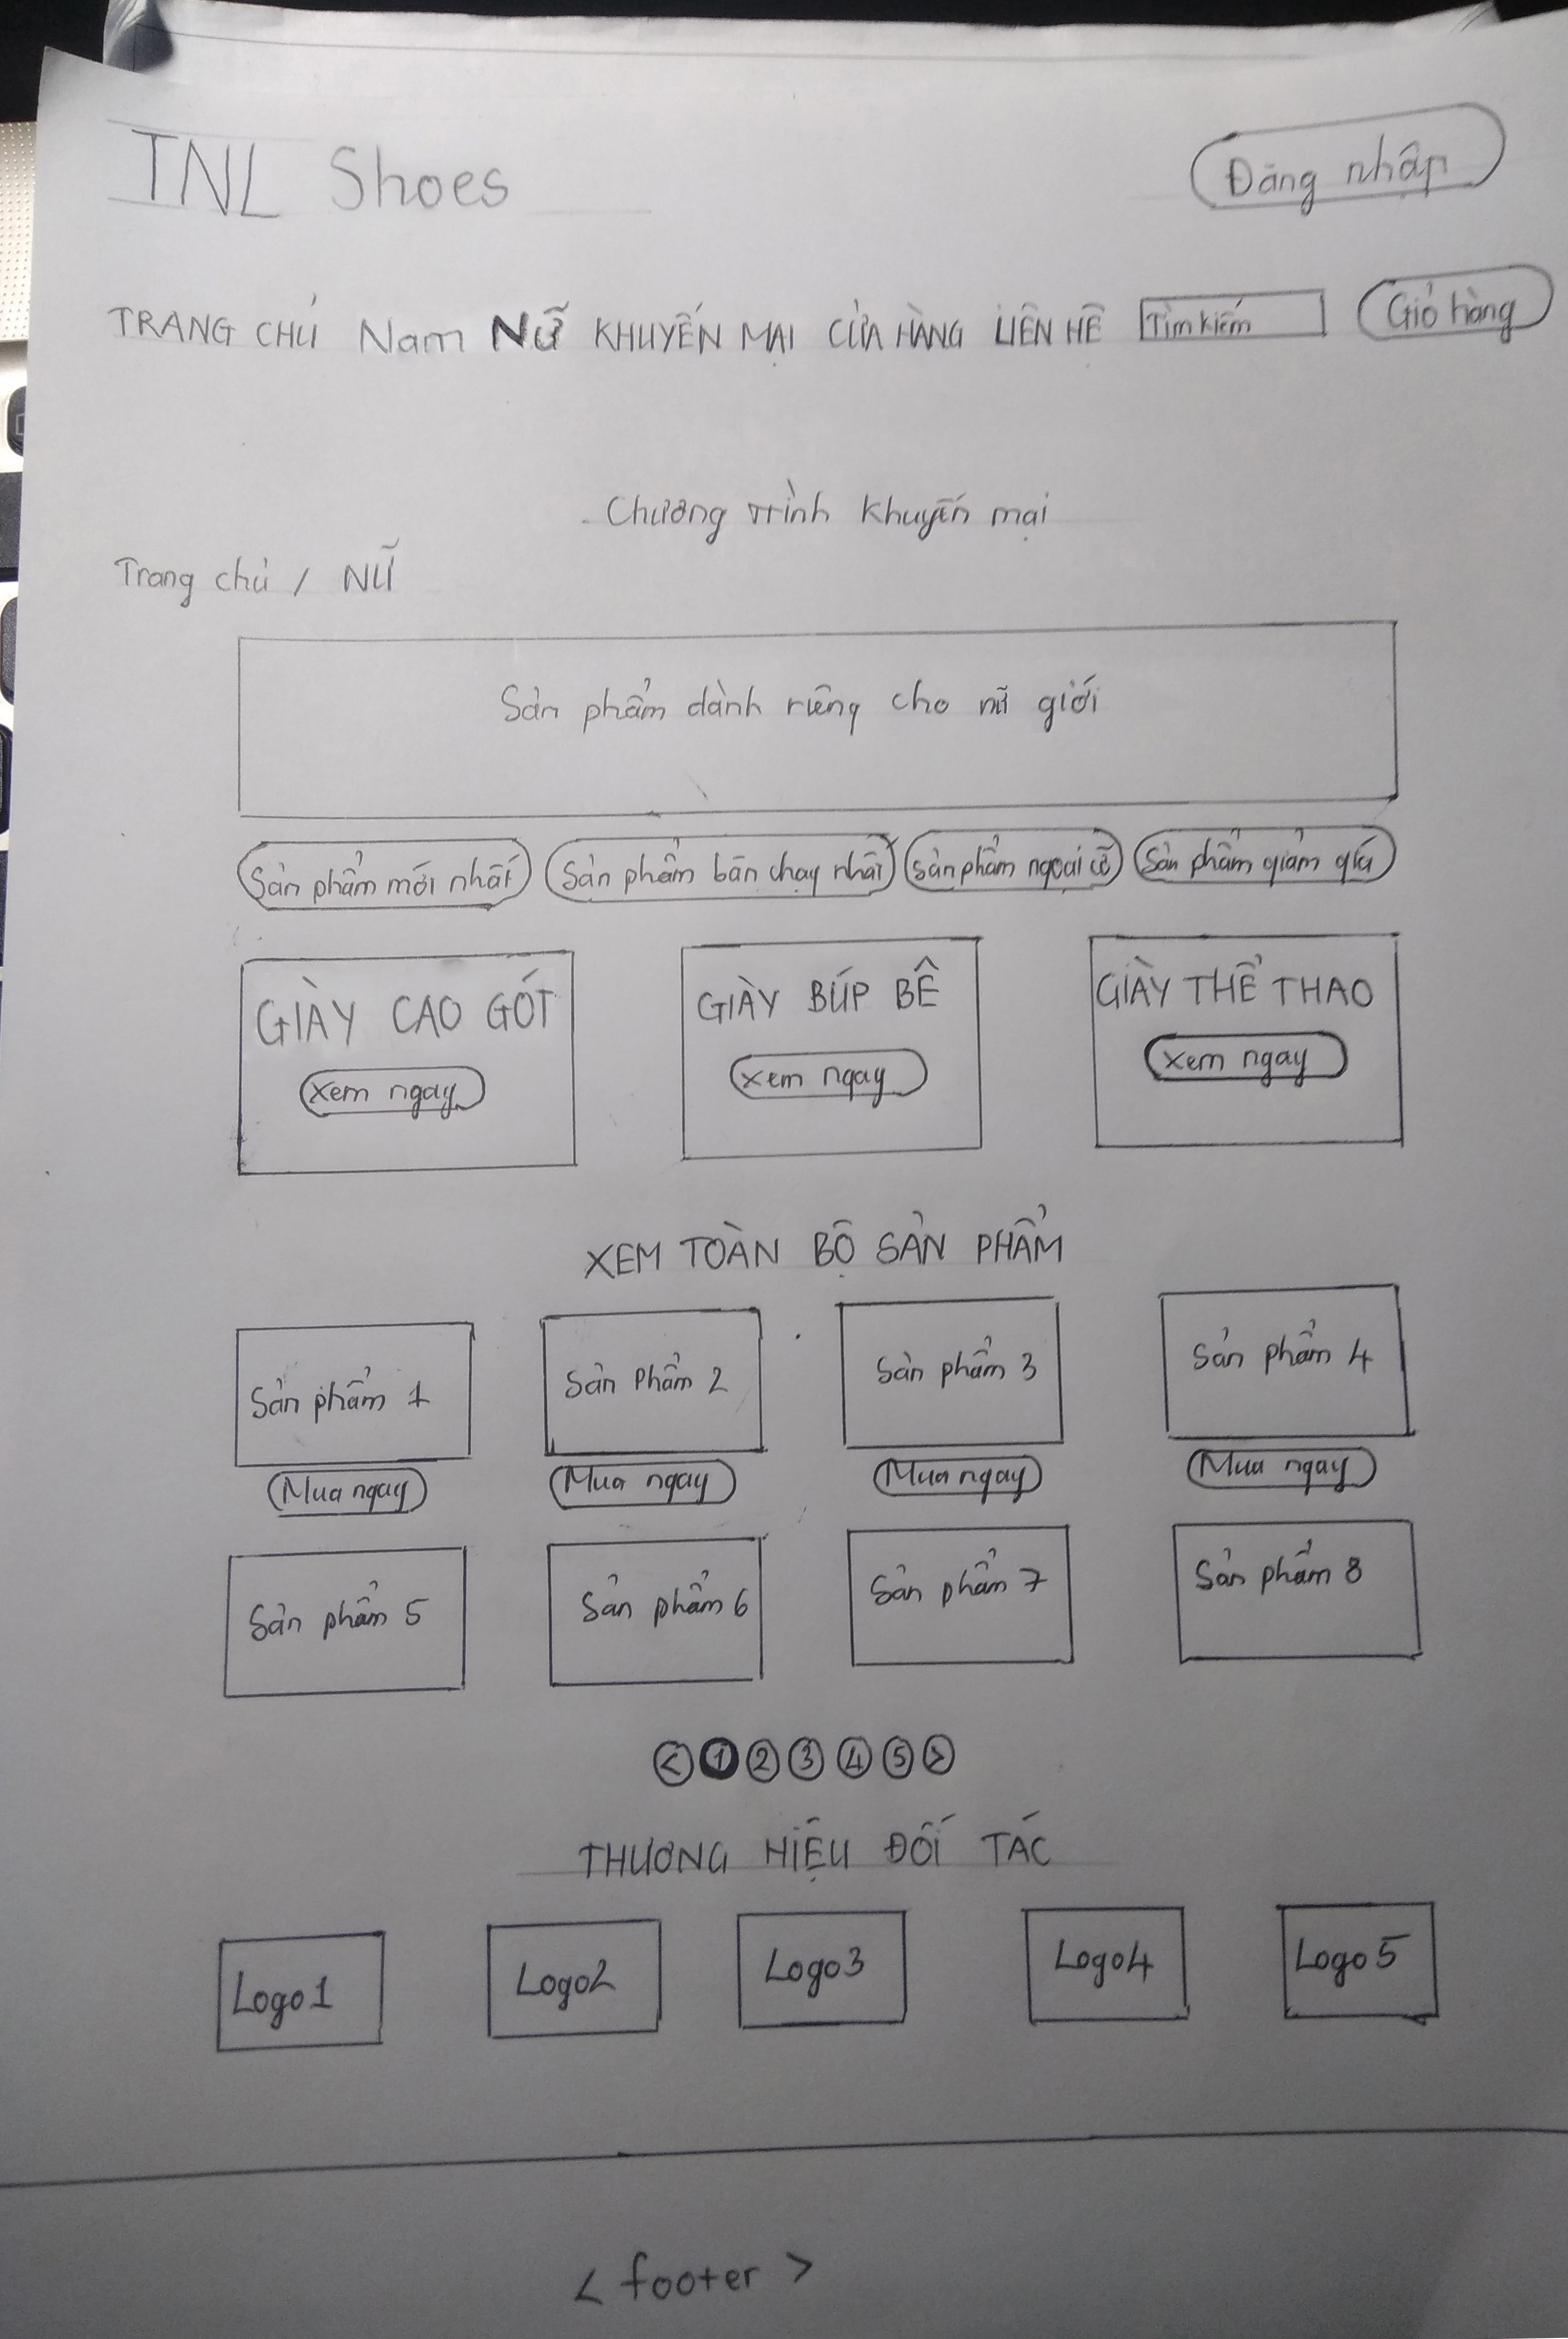 TNL Shoes
Đăng nhập
TRANG CHỦ Nam NỮ KHUYẾN MẠI CỬA HÀNG LIÊN HỆ Tìm kiếm Giỏ hàng
Chương trình khuyến mại
Trang chủ / NỮ
Sản phẩm dành riêng cho nữ giới
Sản phẩm mới nhất Sản phẩm bán chạy nhất Sản phẩm ngoại cỡ Sản phẩm giảm giá
GIÀY CAO GÓT GIÀY BÚP BÊ GIÀY THỂ THAO
Xem ngay Xem ngay Xem ngay
XEM TOÀN BỘ SẢN PHẨM
Sản phẩm 1 Sản Phẩm 2 Sản phẩm 3 Sản phẩm 4
Mua ngay Mua ngay Mua ngay Mua ngay
Sản phẩm 5 Sản phẩm 6 Sản phẩm 7 Sản phẩm 8
< 1 2 3 4 5 >
THƯƠNG HIỆU ĐỐI TÁC
Logo1 Logo2 Logo3 Logo4 Logo5
< footer >